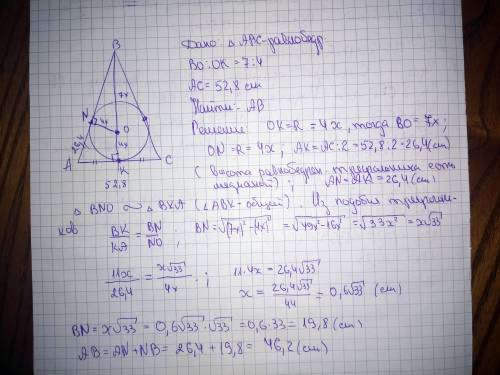 Дано: △ ABC-равнобедр.
BO:OK = 7:4
AC = 52,8 см
Найти:- AB
Решение OK=R = 4x, тогда BO = 7x;
ON =R= 4x; AK=AC:2 = 52,8:2=26,4(см)
(высота равнобедрен. треугольника есть
медианой); AN=AK=26,4(см)
B
7x
N
4x
O
26,4
4x
A
K
C
52,8
△ BNO ∼ △ BKA (∠ABK-общий). Из подобия треугольни-
ков BK/KA = BN/NO; BN=√((7x)²-(4x)²) = √(49x²-16x²) = √(33x²) = x√33
11x/26,4 = x√33/4x; 11·4x = 26,4√33
x = 26,4√33/44 = 0,6√33 (см)
BN = x√33 = 0,6√33·√33 = 0,6·33 = 19,8 (см)
AB = AN+NB = 26,4 + 19,8 = 46,2(см)